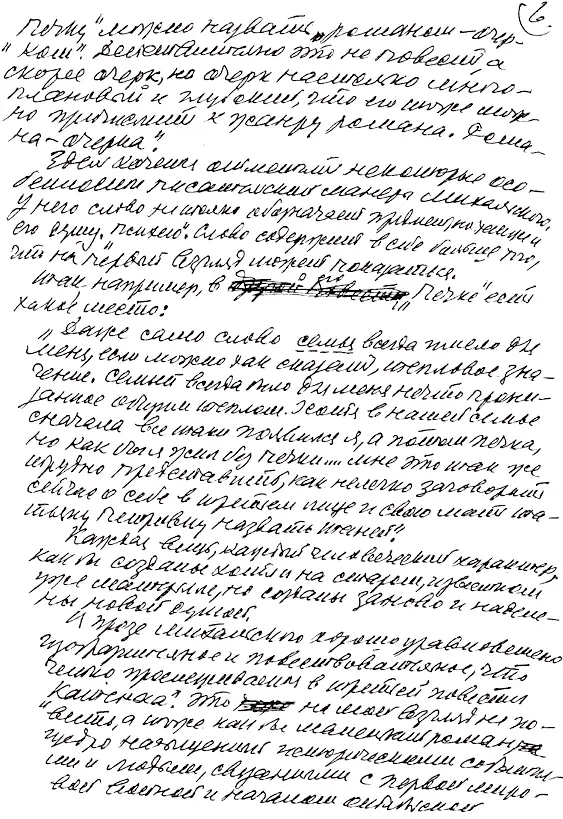 6.
Печку" можно назвать „романом-очер-
ком". Действительно это не повесть, а
скорее очерк, но очерк настолько много-
плановый и глубокий, что его тоже мож-
но причислить к жанру романа. „Рома-
на-очерка".
Здесь хочется отметить некоторые осо-
бенности писательской манеры
У него слово не только обозначает предмет, но ещё и
его душу. „Психею". Слово содержит в себе больше того,
что на первый взгляд может показаться.
Так например, в его „Печке" есть
такое место:
„Даже само слово семья всегда имело для
меня, если можно так сказать, тепловое зна-
чение. Семья всегда была для меня нечто прони-
занное общим теплом. Хотя в нашей семье
сначала всё-таки появился я, а потом печка,
но как бы я жил без печки.... мне это так же
трудно представить, как нелегко заговорить
сейчас о себе в третьем лице и свою мать Та-
тьяну Петровну назвать Таней".
Каждая вещь, каждый человеческий характер,
как бы созданы хотя и на старом, известном
уже материале, но созданы заново и наделе-
ны новой душой.
В прозе хорошо уравновешено
изобразительное и повествовательное, что
четко прослеживается в третьей повести
Это на мой взгляд не по-
весть, а тоже как бы маленький роман
щедро насыщенный историческими событи-
ями и людьми, связанными с первой миро-
вой войной и началом октябрьской